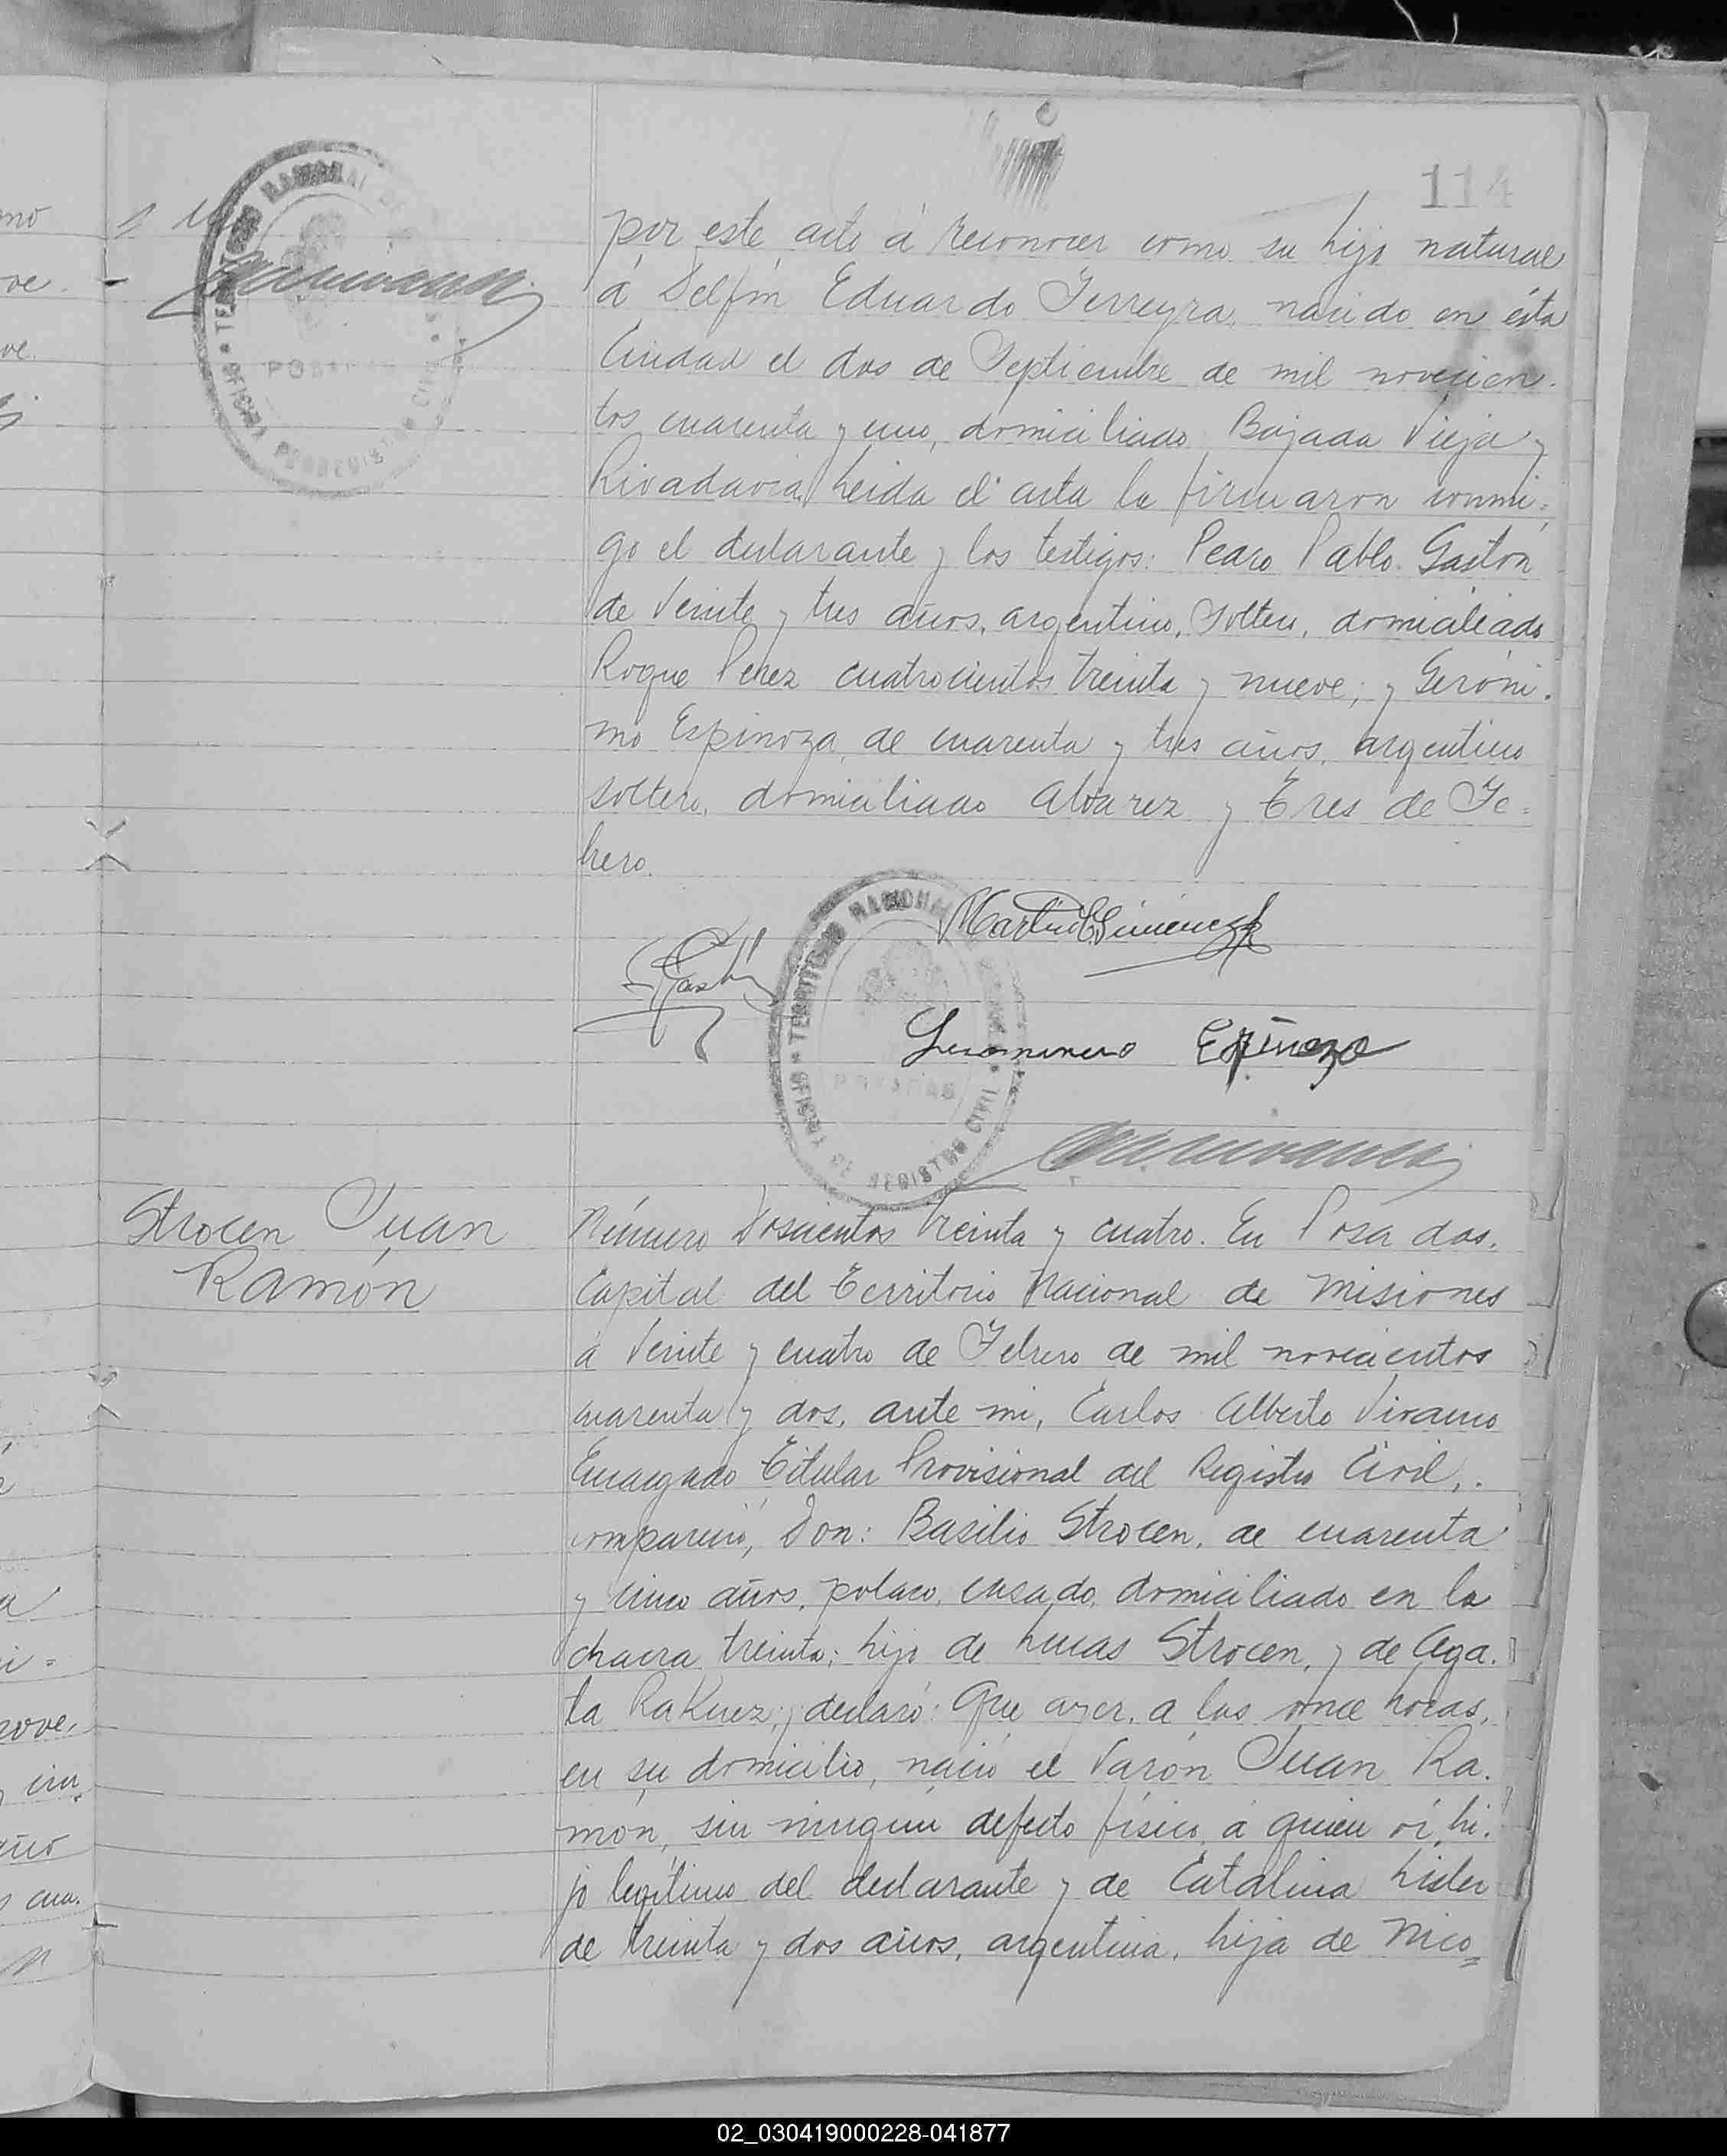 114
por este acto á reconocer como su hijo natural
á Delfín Eduardo Ferreyra, nacido en ésta
Ciudad el dos de Septiembre de mil novecien-
tos cuarenta y uno, domiciliado Bajada Vieja y
Rivadavia. Leida el acta la firmaron conmi-
go el declarante y los testigos: Pedro Pablo Gastón
de Veinte y tres años, argentino, Soltero, domiciliado
Roque Perez cuatrocientos treinta y nueve; y Geróni-
mo Espinoza, de cuarenta y tres años, argentino
soltero, domiciliado Alvarez y Tres de Fe=
brero.
TERRITORIO NACIONAL DE
OFICINA DE REGISTRO CIVIL
POSADAS
Martin E Gimenez
Gastón
Geronimo Espinoza
TERRITORIO NACIONAL
OFICINA DE REGISTRO CIVIL
POSADAS
Strocen Juan
Ramón
Número Doscientos Treinta y cuatro. En Posadas,
Capital del Territorio Nacional de Misiones
á Veinte y cuatro de Febrero de mil novecientos
cuarenta y dos, ante mi, Carlos Alberto Vivanco
Encargado Titular Provisional del Registro Civil,
compareció, Don: Basilio Strocen, de cuarenta
y cinco años, polaco, casado, domiciliado en la
chacra treinta; hijo de Lucas Strocen, y de Aga-
ta Rakuez; declaró: Que ayer, a las once horas,
en su domicilio, nació el Varón Juan Ra-
món, sin ningún defecto físico, á quien ví, hi-
jo legítimo del declarante y de Catalina Lisler
de treinta y dos años, argentina, hija de Nico=
02_030419000228-041877